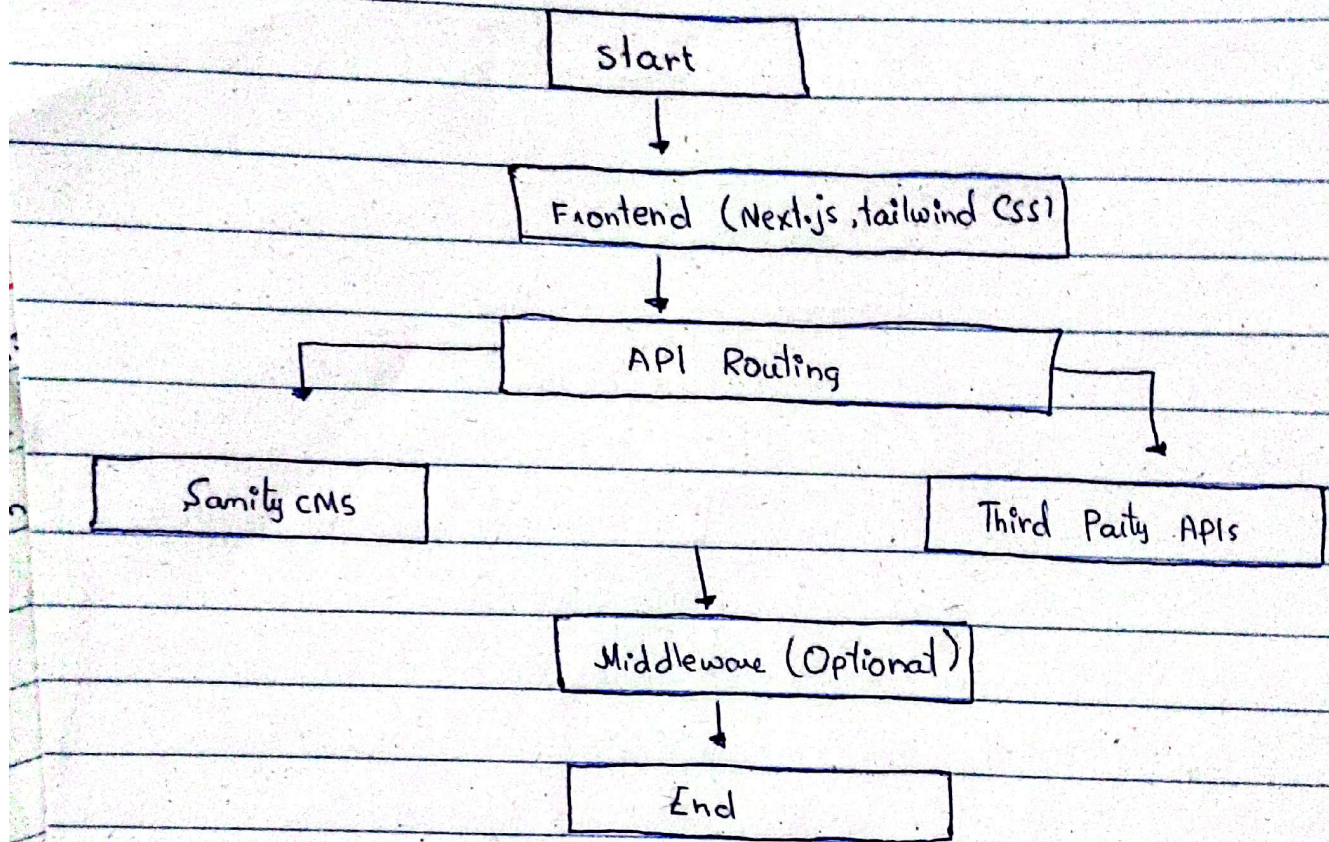 Start
Frontend (Next.js, tailwind CSS)
API Routing
Sanity CMS
Third Party APIs
Middleware (Optional)
End